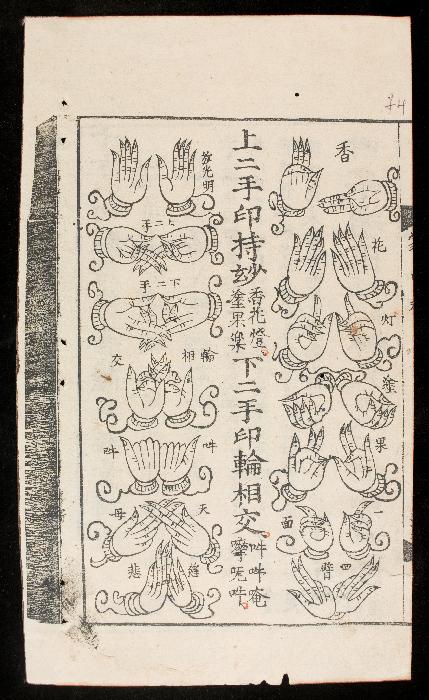 香
花
灯
塗
果
一面
四臂
上二手印持妙
香花燈
塗果樂
下二手印輪相交
吽吽唵
放光明
上二手
下二手
輪相交
吽吽
天母
慈悲
44